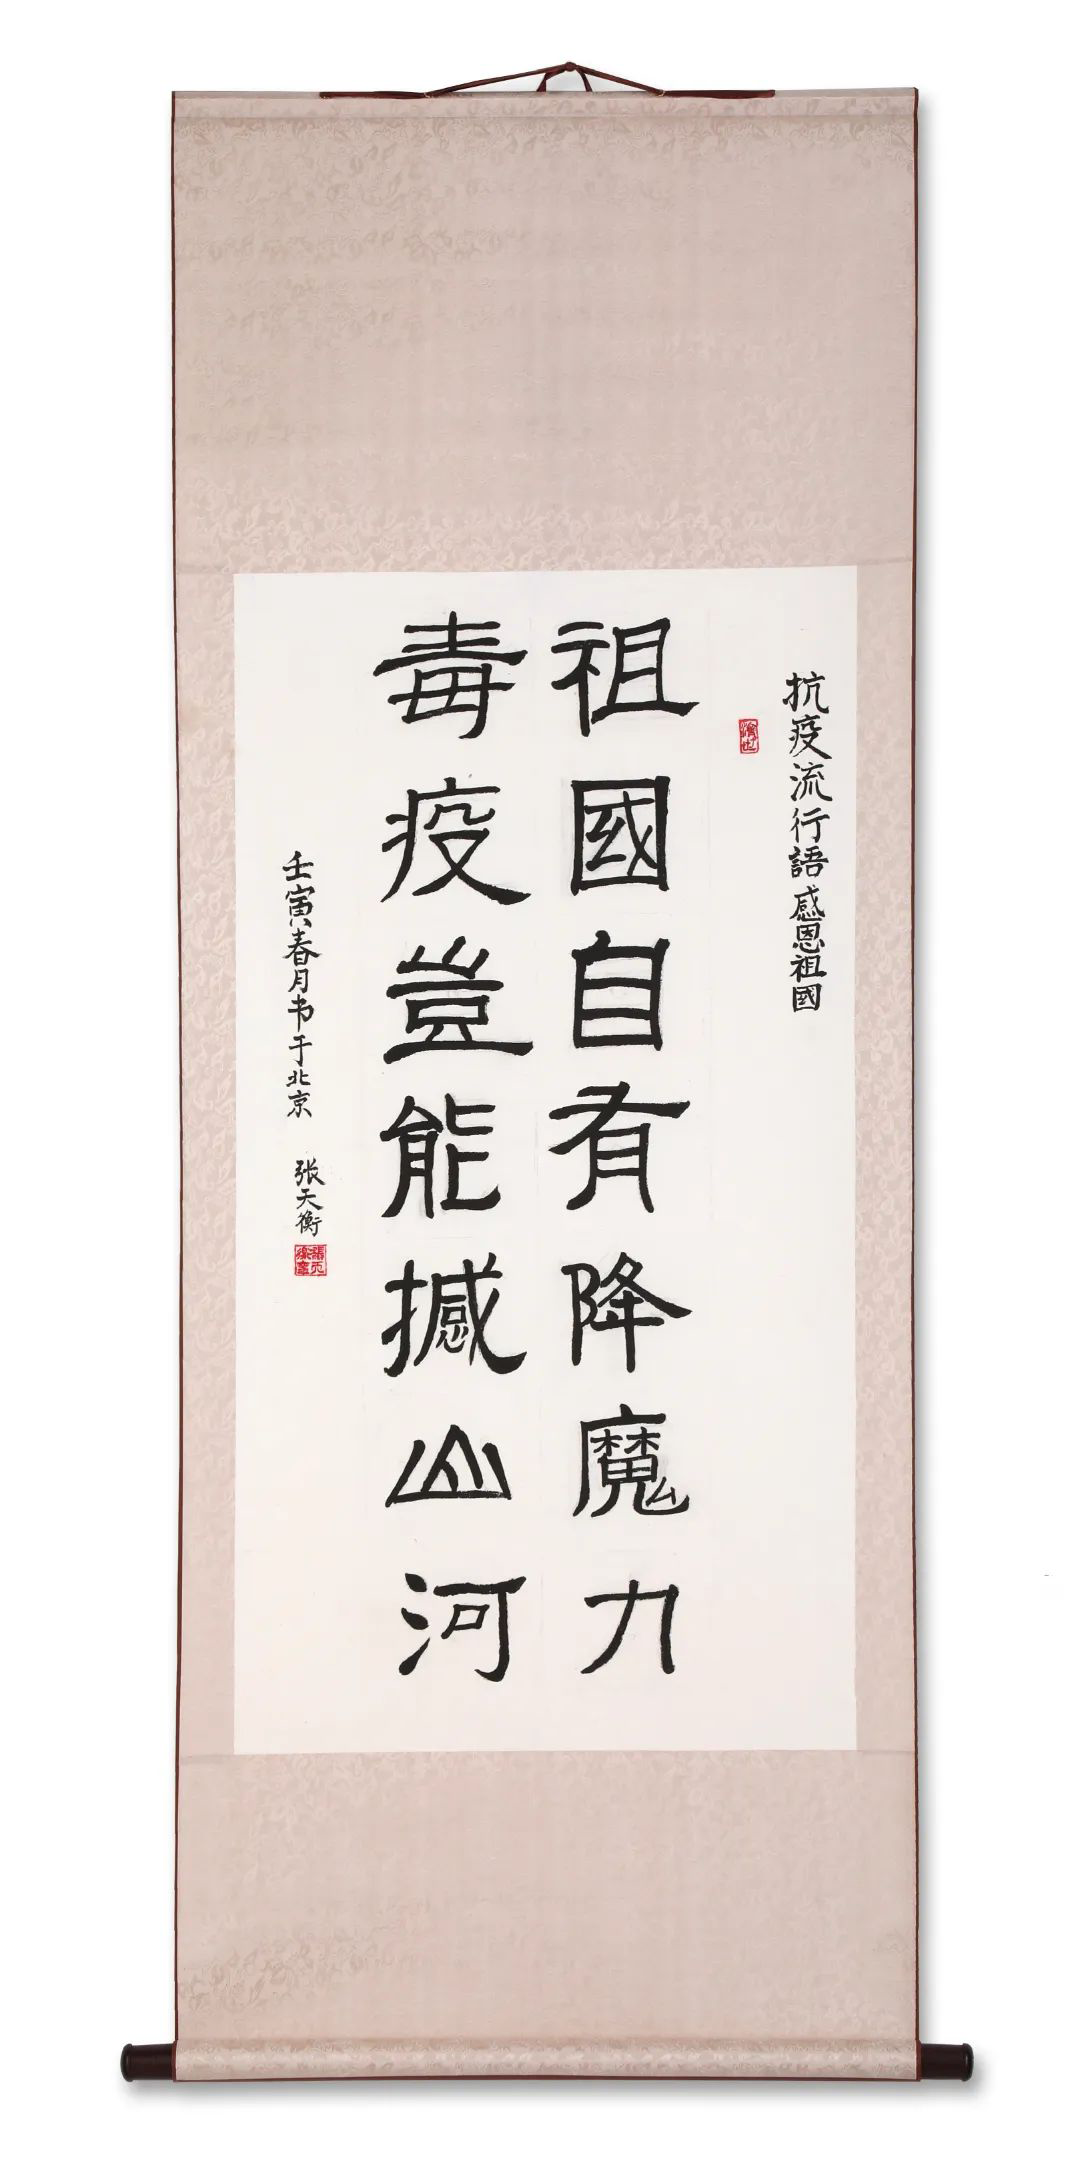 抗疫流行語感恩祖國
祖國自有降魔力
毒疫豈能撼山河
壬寅春月书于北京
张天衡